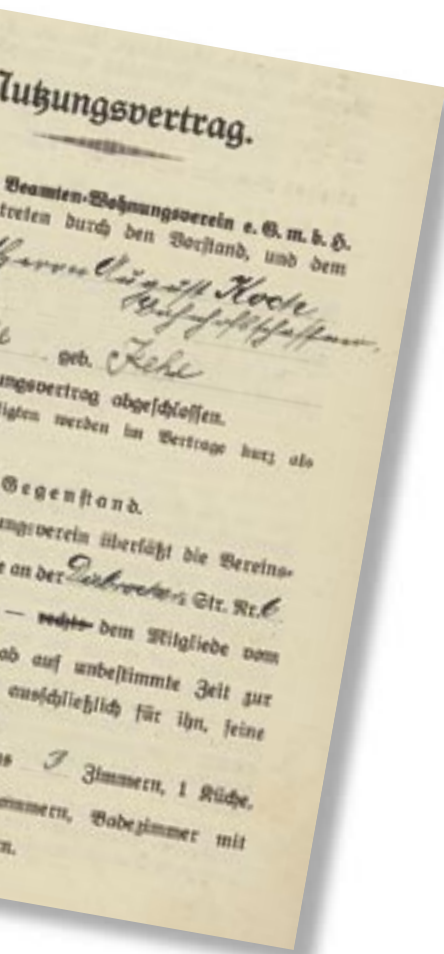 Nutzungsvertrag.
Beamten-Wohnungsverein e. G. m. b. H.
treten durch den Vorstand, und dem
Herrn August Koch
geb. Jehe
ungsvertrag abgeschlossen.
ligten werden im Vertrage kurz als
Gegenstand.
ungsverein überläßt die Vereins-
e an der Str. Nr. 6
— rechts dem Mitgliede vom
ab auf unbestimmte Zeit zur
ausschließlich für ihn, seine
3 Zimmern, 1 Küche,
ammern, Badezimmer mit
n.